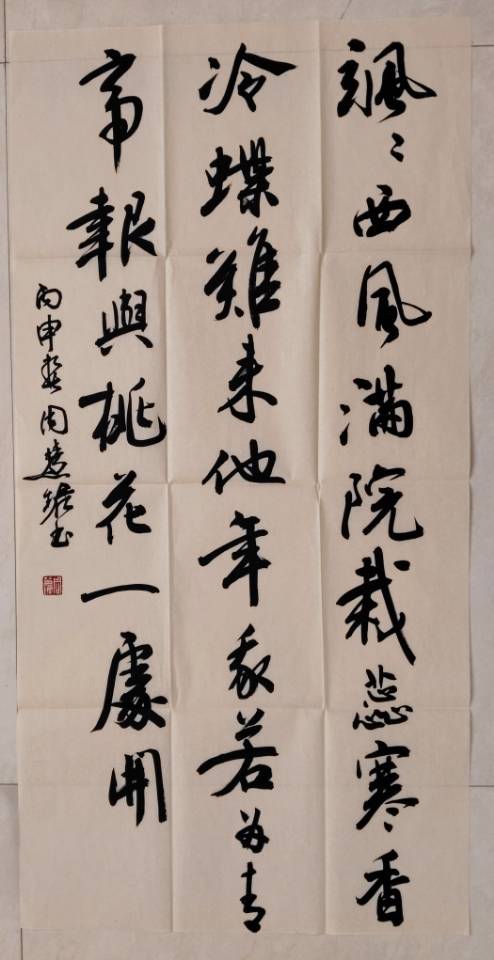 颯〻西風滿院栽蕊寒香
冷蝶難来他年我若为青
帝報與桃花一處開
丙申周慧书